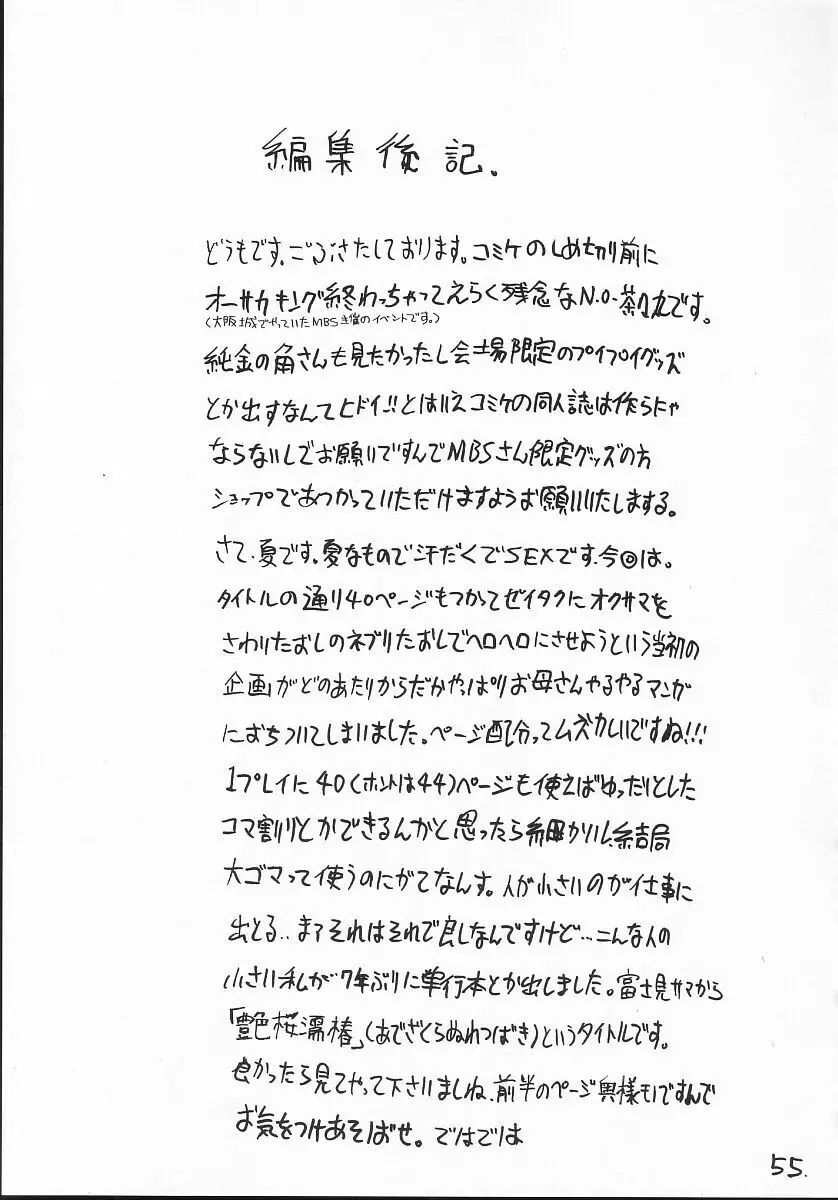 編集後記.
どうもです、ごぶさたしております。コミケのしめ切り前に
オーサカキング終わっちゃってえらく残念なN.O-茶々丸です。
(大阪城でやっていたMBS主催のイベントです。)
純金の角さんも見たかったし会場限定のプイプイグッズ
とか出すなんてヒドイ!!とはいえコミケの同人誌は作らにゃ
ならないしでお願いですんでMBSさん限定グッズの方
ショップであつかっていただけますようお願いいたしまする。
さて、夏です。夏なもので汗だくでSEXです。今回は。
タイトルの通り40ページもつかってゼイタクにオクサマを
さわりたおしのネブリたおしでヘロヘロにさせようという当初の
企画がどのあたりからだかやっぱりお母さんやるやるマンガ
におちついてしまいました。ページ配分ってムズカしいですね!!!
1プレイに40(ホントは44)ページも使えばゆったりとした
コマ割りとかができるんかと思ったら細かいし、結局
大ゴマって使うのにがてなんす。人が小さいのが仕事に
出とる..まァそれはそれで良しなんですけど…こんな人の
小さい私が7年ぶりに単行本とか出しました。富士見サマから
「艶色桜濡椿」(あでざくらぬれつばき)というタイトルです。
良かったら見てやって下さいましね、前半のページ奥様モノですんで
お気をつけあそばせ。ではでは
55.